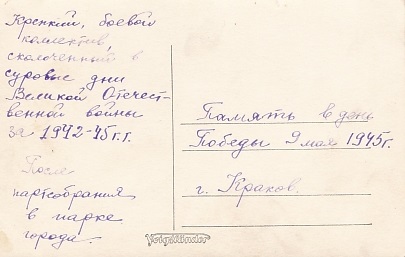 Крепкий, боевой
коллектив,
сколоченный в
суровые дни
Великой Отечест-
венной войны
за 1942-45 г.г.
После
партсобрания
в парке
города.
Память в день
Победы 9 мая 1945г.
г. Краков.
Voigtländer